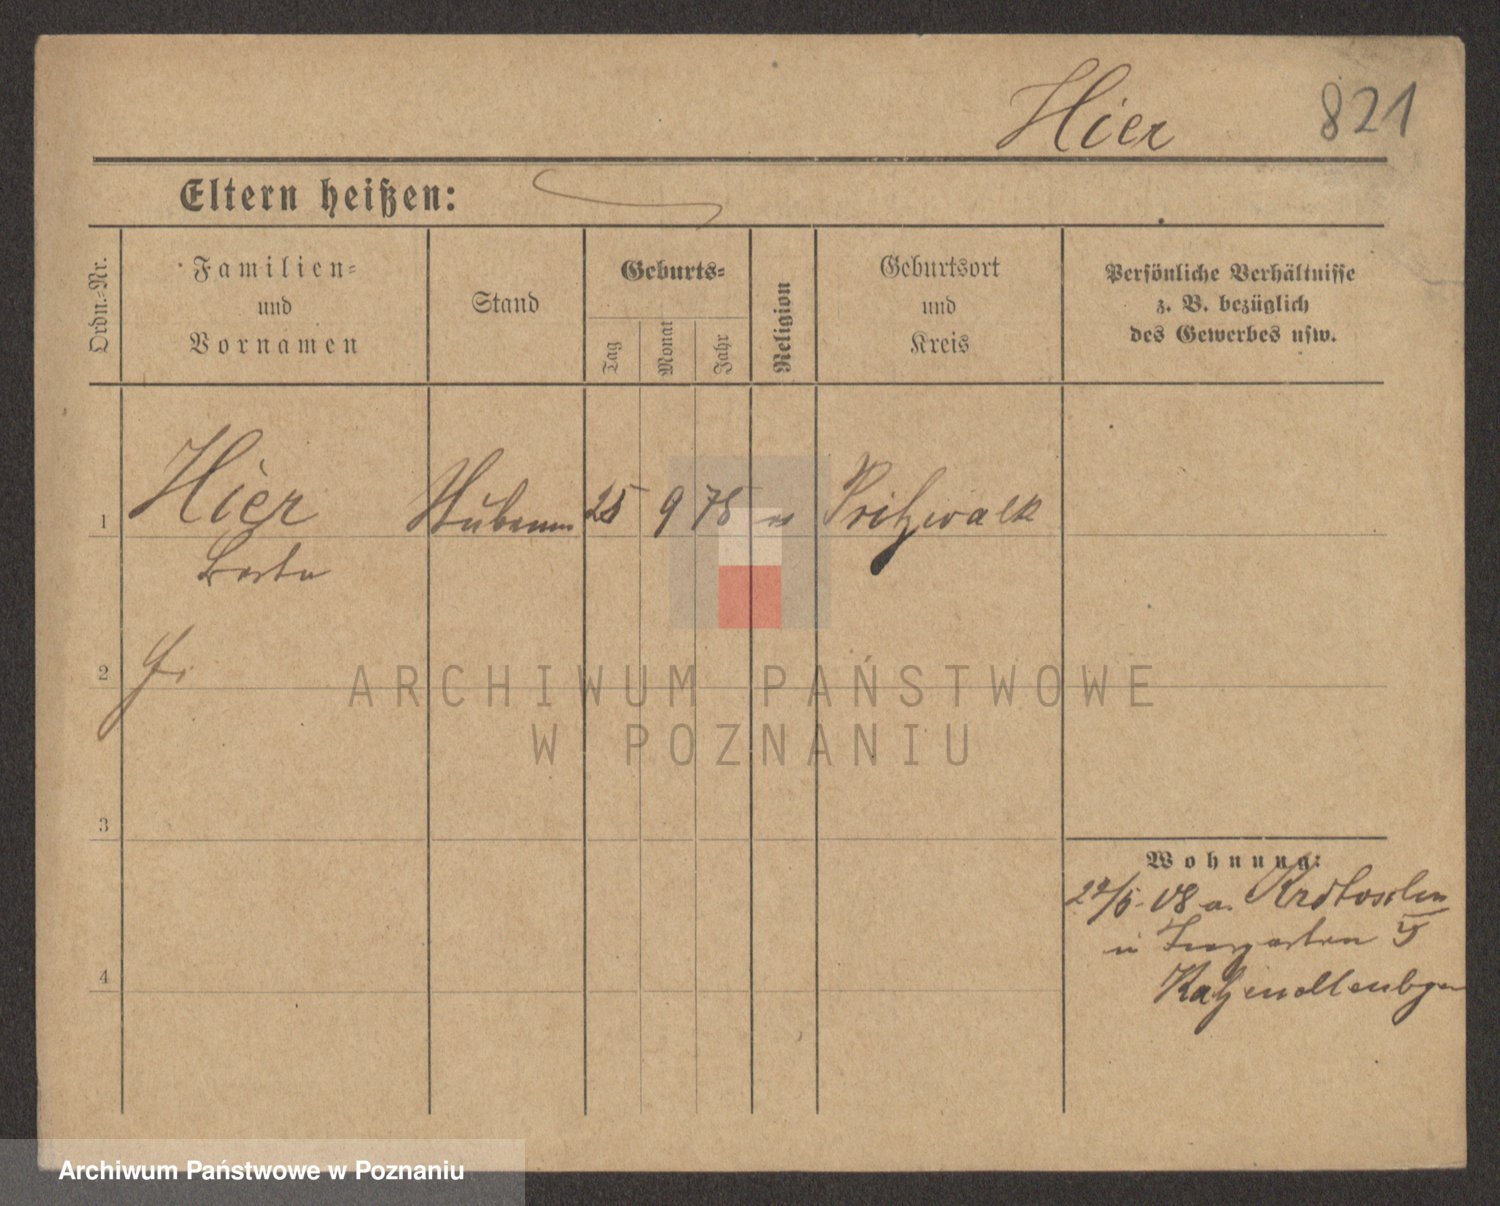 Hier 821
Eltern heißen:
Ordn.-Nr.
Familien-
und
Vornamen
Stand
Geburts-
Tag
Monat
Jahr
Religion
Geburtsort
und
Kreis
Persönliche Verhältnisse
z. B. bezüglich
des Gewerbes usw.
1 Hier 25 9 78 Pritzwalk
2
3
4
Wohnung:
08 a. Krotoschin
ARCHIWUM PAŃSTWOWE
W POZNANIU
Archiwum Państwowe w Poznaniu